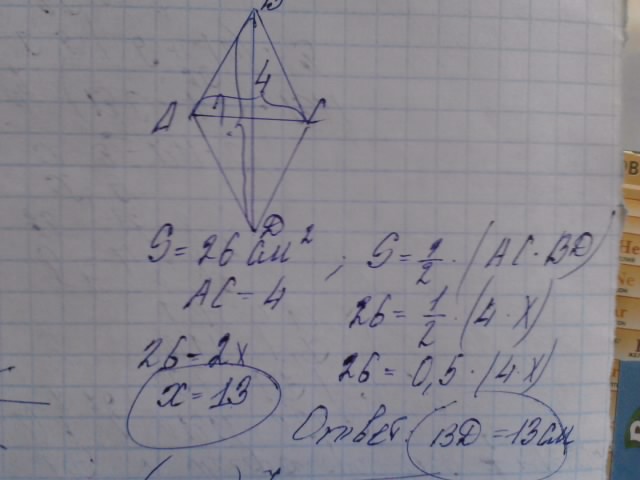 B
4
A
C
?
D
S = 26 см²; S = 1/2 · (AC · BD)
AC = 4
26 = 1/2 · (4 · X)
26 = 2x
26 = 0,5 · (4 · X)
x = 13
Ответ BD = 13 см
He
Ne
Ar